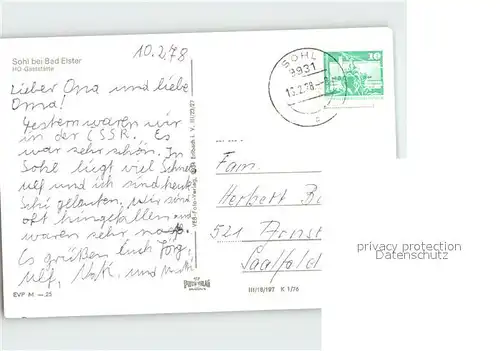 Sohl bei Bad Elster
HO-Gaststätte
10.2.78
Lieber Opa und liebe
Oma!
Gestern waren wir
in der ČSSR. Es
war sehr schön. In
Sohl liegt viel Schnee
Ulf und ich sind heute
Schi gelaufen. Wir sind
oft hingefallen und
waren sehr naß.
Es grüßen Euch Jörg,
Ulf, und
EVP M —.25
III/18/197 K 1/76
SOHL
9931
10
Fam.
Herbert
521 Arnst
Saalfeld
privacy protection
Datenschutz